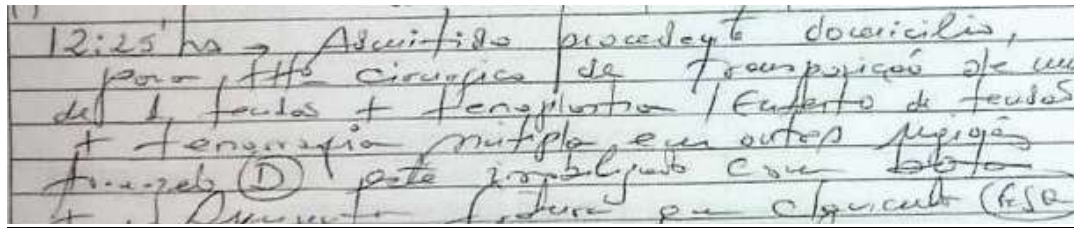 12:25 hs → Admitido procedente domicilio,
para ttº cirurgico de Transposição de um
de 1 tendos + tenoplastia / Enxerto de tendos
+ tenorrafia multipla em outras região
tornozelo (D) pcte imobilizado com bota
fratura em clavicula (ESQ